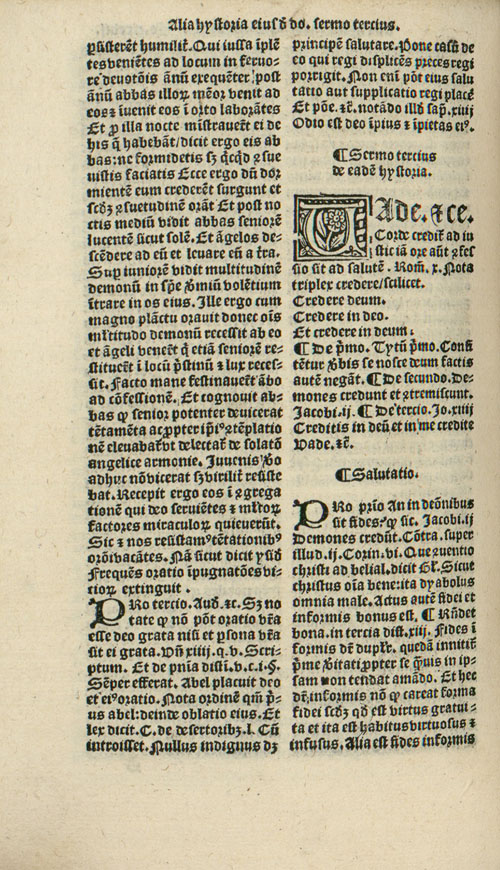 Alia hystoria eius ð do. sermo tercius.
ꝓsisterēt humilit̄. Qui iussa īplē⸗
tes veniētes ad locum in feruo⸗
re deuotōis ānū exequēter/post
ānū abbas illoꝝ meoꝝ venit ad
eos ⁊ īuenit eos ī orto laborātes
Et ꝓ illa nocte mīstrauerūt ei de
his q̄ habebāt/dicit ergo eis ab
bas:ne formidetis sꝫ qͥcqͥd ꝯsue
uistis faciatis Ecce ergo dū dor
mientē eum crederēt surgunt et
scd̄ꝫ ꝯsuetudinē orāt Et post no
ctis mediū vidit abbas seniorē
lucentē sicut solē. Et āgelos de⸗
scēdere ad eū et leuare eū a t̄ra.
Suꝑ iuniorē vidit multitudinē
demonū in sp̄e volētium
ītrare in os eius. Ille ergo cum
magno plāctu orauit donec oīs
ml̄titudo demonū recessit ab eo
et āgeli venerūt q̄ etiā seniorē re⸗
stituerūt ī locū pͥstinū ⁊ lux reces⸗
sit. Facto mane festinauerūt ābo
ad cōfessionē. Et cognouit ab⸗
bas ꝙ senior potenter deuicerat
tētamēta ac ꝓpter ip̄iꝰ ꝯtēplatio
nē eleuabat̄ vt delectat̄ de solatō
angelice armonie. Juuenis v̓o
adhuc nō vicerat sꝫ virilit̄ resiste
bat. Recepit ergo eos ī ꝯgrega
tionē qui deo seruiētes ⁊
factores miraculoꝝ quieuerūt.
Sic ⁊ nos resistamꝰ tētationibꝰ
orōi vacātes. Nā sicut dicit ysid̄
Frequēs oratio īpugnatōes vi⸗
cioꝝ extinguit.
PRo tercio. Aud̄. ⁊c. Sꝫ no
tate ꝙ nō pōt oratio vēa
esse deo grata nisi et ꝑsona vēa
sit ei grata. Vñ xiiij. q. v. Scri⸗
ptum. Et de pn̄ia disti. v. c. i. §.
Sēper efferat. Abel placuit deo
et eiꝰ oratio. Nota ordinē qm̄ pͥ⸗
us abel:deinde oblatio eius. Et
lex dicit. C. de desertoribꝫ. l. Cū
introisset. Nullus indignus dꝫ
principē salutare. Pone casū de
eo qui regi displicēs preces regi
porrigit. Non em̄ pōt eius salu
tatio aut supplicatio regi placē
Et pōe. ⁊c̄. notādo illd̄ sap̄. xiiij
Odio est deo īpius ⁊ īpietas eiꝰ.
¶ Sermo tercius
de eadē hystoria.
VAde. ⁊ ce.
Corde credit̄ ad iu
sticiā ore aūt ꝯfes
sio fit ad salutē. Rom̄. x. Nota
triplex credere/scilicet.
Credere deum.
Credere in deo.
Et credere in deum.
¶ De pͥmo. Tytū pͥmo. Confi
tētur v̓bis se nosce deum factis
autē negāt. ¶ De secundo. De⸗
mones credunt et ꝯtremiscunt.
Jacobi. ij. ¶ De tercio. Jo. xiiij
Creditis in deū et in me credite
Vade. ⁊c̄.
¶ Salutatio.
PRo pͥrio An in deōnibus
sit fides. ꝙ sic. Jacobi. ij
Demones credūt. Cōtra. super
illud. ij. Corin. vi. Que ꝯuentio
christi ad belial. dicit Gl̄. Sicut
christus oīa bene:ita dyabolus
omnia male. Actus autē fidei et
informis bonus est. ¶ Rñdet
bona. in tercia dist. xiij. Fides ī
formis dr̄ duplr̄. quedā innitit̄
pͥme v̓itati ꝓpter se qͣuis in ip⸗
sam non tendat amādo. Et hec
dr̄ informis nō ꝙ careat forma
fidei scd̄ꝫ qd̄ est virtus gratui⸗
ta et ita est habitus virtuosus ⁊
infusus. Alia est fides informis